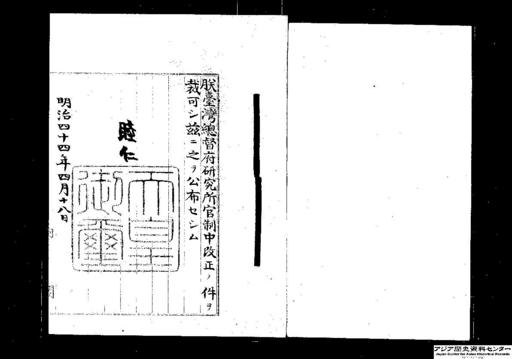 朕臺灣總督府研究所官制中改正ノ件ヲ
裁可シ茲ニ之ヲ公布セシム
睦仁
天皇御璽
明治四十四年四月十八日
アジア歴史資料センター
Japan Center for Asian Historical Records